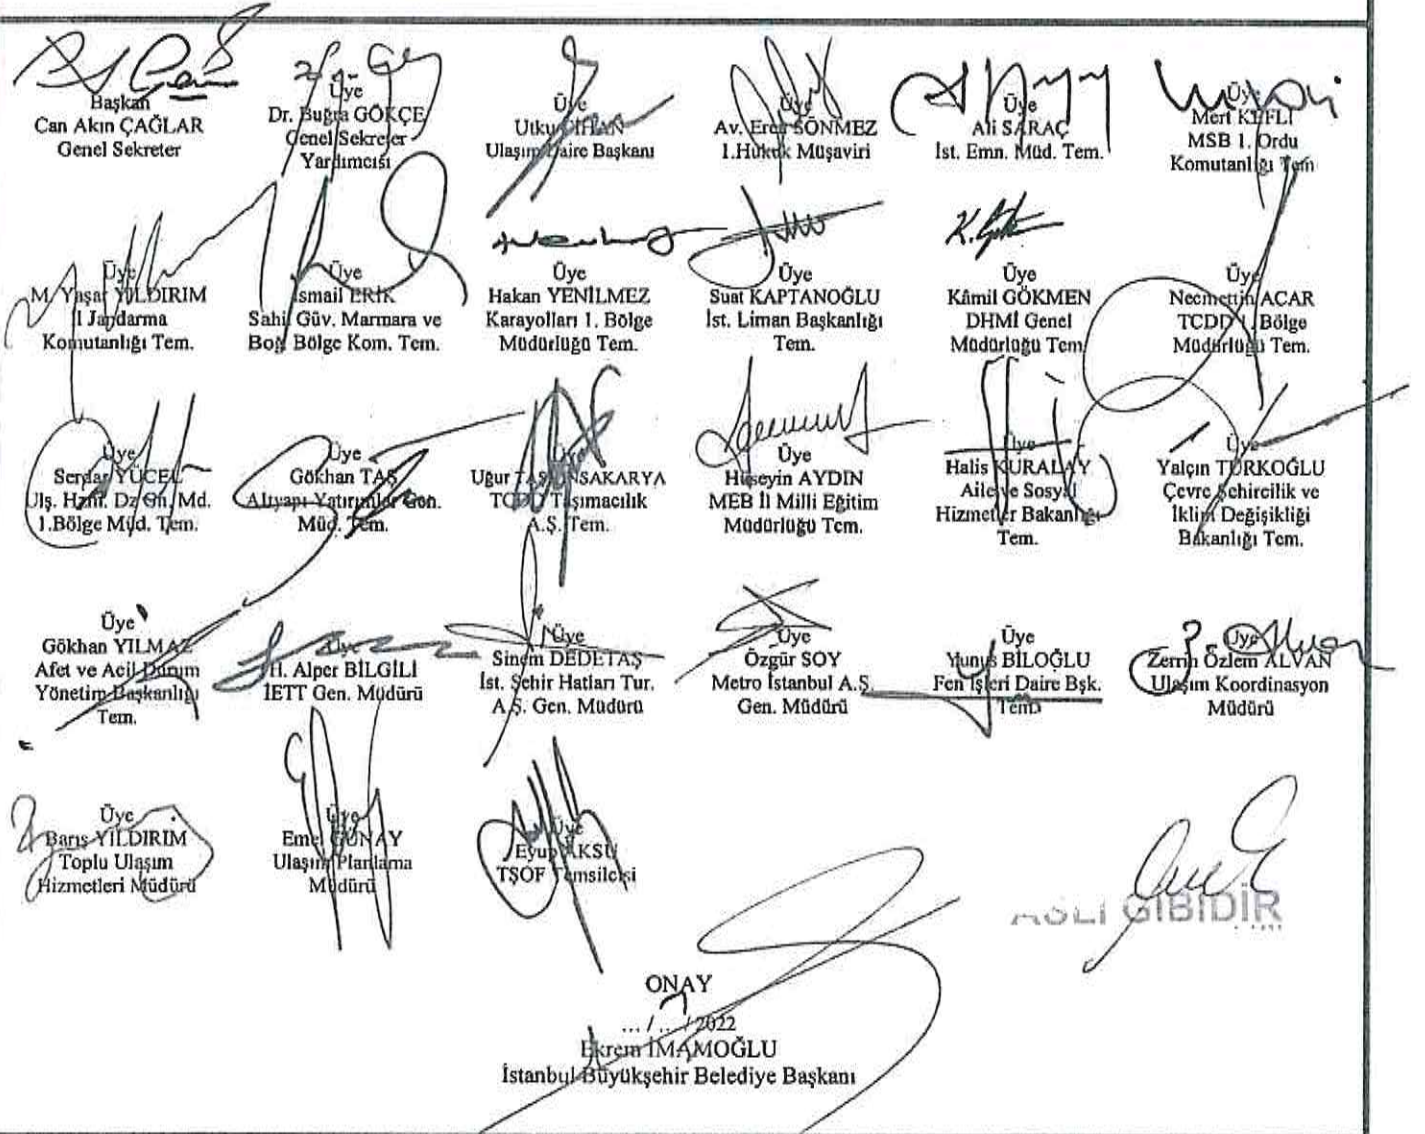 Başkan
Can Akın ÇAĞLAR
Genel Sekreter
Üye
Dr. Buğra GÖKÇE
Genel Sekreter
Yardımcısı
Üye
Utku CİHAN
Ulaşım Daire Başkanı
Üye
Av. Eren SÖNMEZ
1.Hukuk Müşaviri
Üye
Ali SARAÇ
İst. Emn. Müd. Tem.
Üye
Mert KEFLİ
MSB 1. Ordu
Komutanlığı Tem
Üye
M. Yaşar YILDIRIM
İl Jandarma
Komutanlığı Tem.
Üye
İsmail ERİK
Sahil Güv. Marmara ve
Boğ. Bölge Kom. Tem.
Üye
Hakan YENİLMEZ
Karayolları 1. Bölge
Müdürlüğü Tem.
Üye
Suat KAPTANOĞLU
İst. Liman Başkanlığı
Tem.
Üye
Kâmil GÖKMEN
DHMİ Genel
Müdürlüğü Tem.
Üye
Necmettin ACAR
TCDD 1. Bölge
Müdürlüğü Tem.
Üye
Serdar YÜCEL
Ulş. Hzm. Dz Gn. Md.
1.Bölge Müd. Tem.
Üye
Gökhan TAŞ
Altyapı Yatırımlar Gen.
Müd. Tem.
Üye
Uğur
TCDD Taşımacılık
A.Ş. Tem.
Üye
Hüseyin AYDIN
MEB İl Milli Eğitim
Müdürlüğü Tem.
Üye
Halis KURALAY
Aile ve Sosyal
Hizmetler Bakanlığı
Tem.
Üye
Yalçın TÜRKOĞLU
Çevre Şehircilik ve
İklim Değişikliği
Bakanlığı Tem.
Üye
Gökhan YILMAZ
Afet ve Acil Durum
Yönetim Başkanlığı
Tem.
Üye
H. Alper BİLGİLİ
İETT Gen. Müdürü
Üye
Sinem DEDETAŞ
İst. Şehir Hatları Tur.
A.Ş. Gen. Müdürü
Üye
Özgür SOY
Metro İstanbul A.Ş.
Gen. Müdürü
Üye
Yunus BİLOĞLU
Fen İşleri Daire Bşk.
Tem.
Üye
Zerrin Özlem ALVAN
Ulaşım Koordinasyon
Müdürü
Üye
Barış YILDIRIM
Toplu Ulaşım
Hizmetleri Müdürü
Üye
Emel GÜNAY
Ulaşım Planlama
Müdürü
Üye
Eyup AKSU
TŞOF Temsilcisi
ASLI GİBİDİR
ONAY
... / ... / 2022
Ekrem İMAMOĞLU
İstanbul Büyükşehir Belediye Başkanı